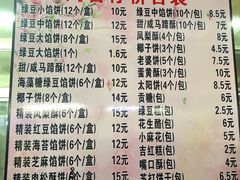 绿豆中馅饼(12个/盒) 10元
绿豆中馅饼(10个/包) 8.5元
绿豆小馅饼(12个/盒)
甜/咸马蹄酥(10个/包)
绿豆大馅饼(6个/盒) 10元
凤梨酥(6个/包) 5元
绿豆大馅饼(1个) 1.6元
椰子饼(6个/包) 5元
甜/咸马蹄酥(12个/盒) 12元
老婆饼(6个/包) 7.5元
海藻糖绿豆馅饼(6个/盒) 12元
蛋黄酥(3个/包) 10元
椰子饼(8个/盒) 14元
太阳饼(4个/包) 8.5元
凤梨酥(8个/盒) 12元
贡糖(包) 5元
精装凤梨酥(6个/盒) 15元
绿豆糕(包) 5元
精装红豆馅饼(6个/盒) 15元
花生酪(包) 5元
精装绿豆馅饼(6个/盒) 15元
小麻花(包) 5元
精装海苔馅饼(6个/盒) 15元
吉红糕(包) 5元
精装芝麻馅饼(6个/盒)
嘴口酥(包) 5元
精装肉松酥饼(6个/盒)